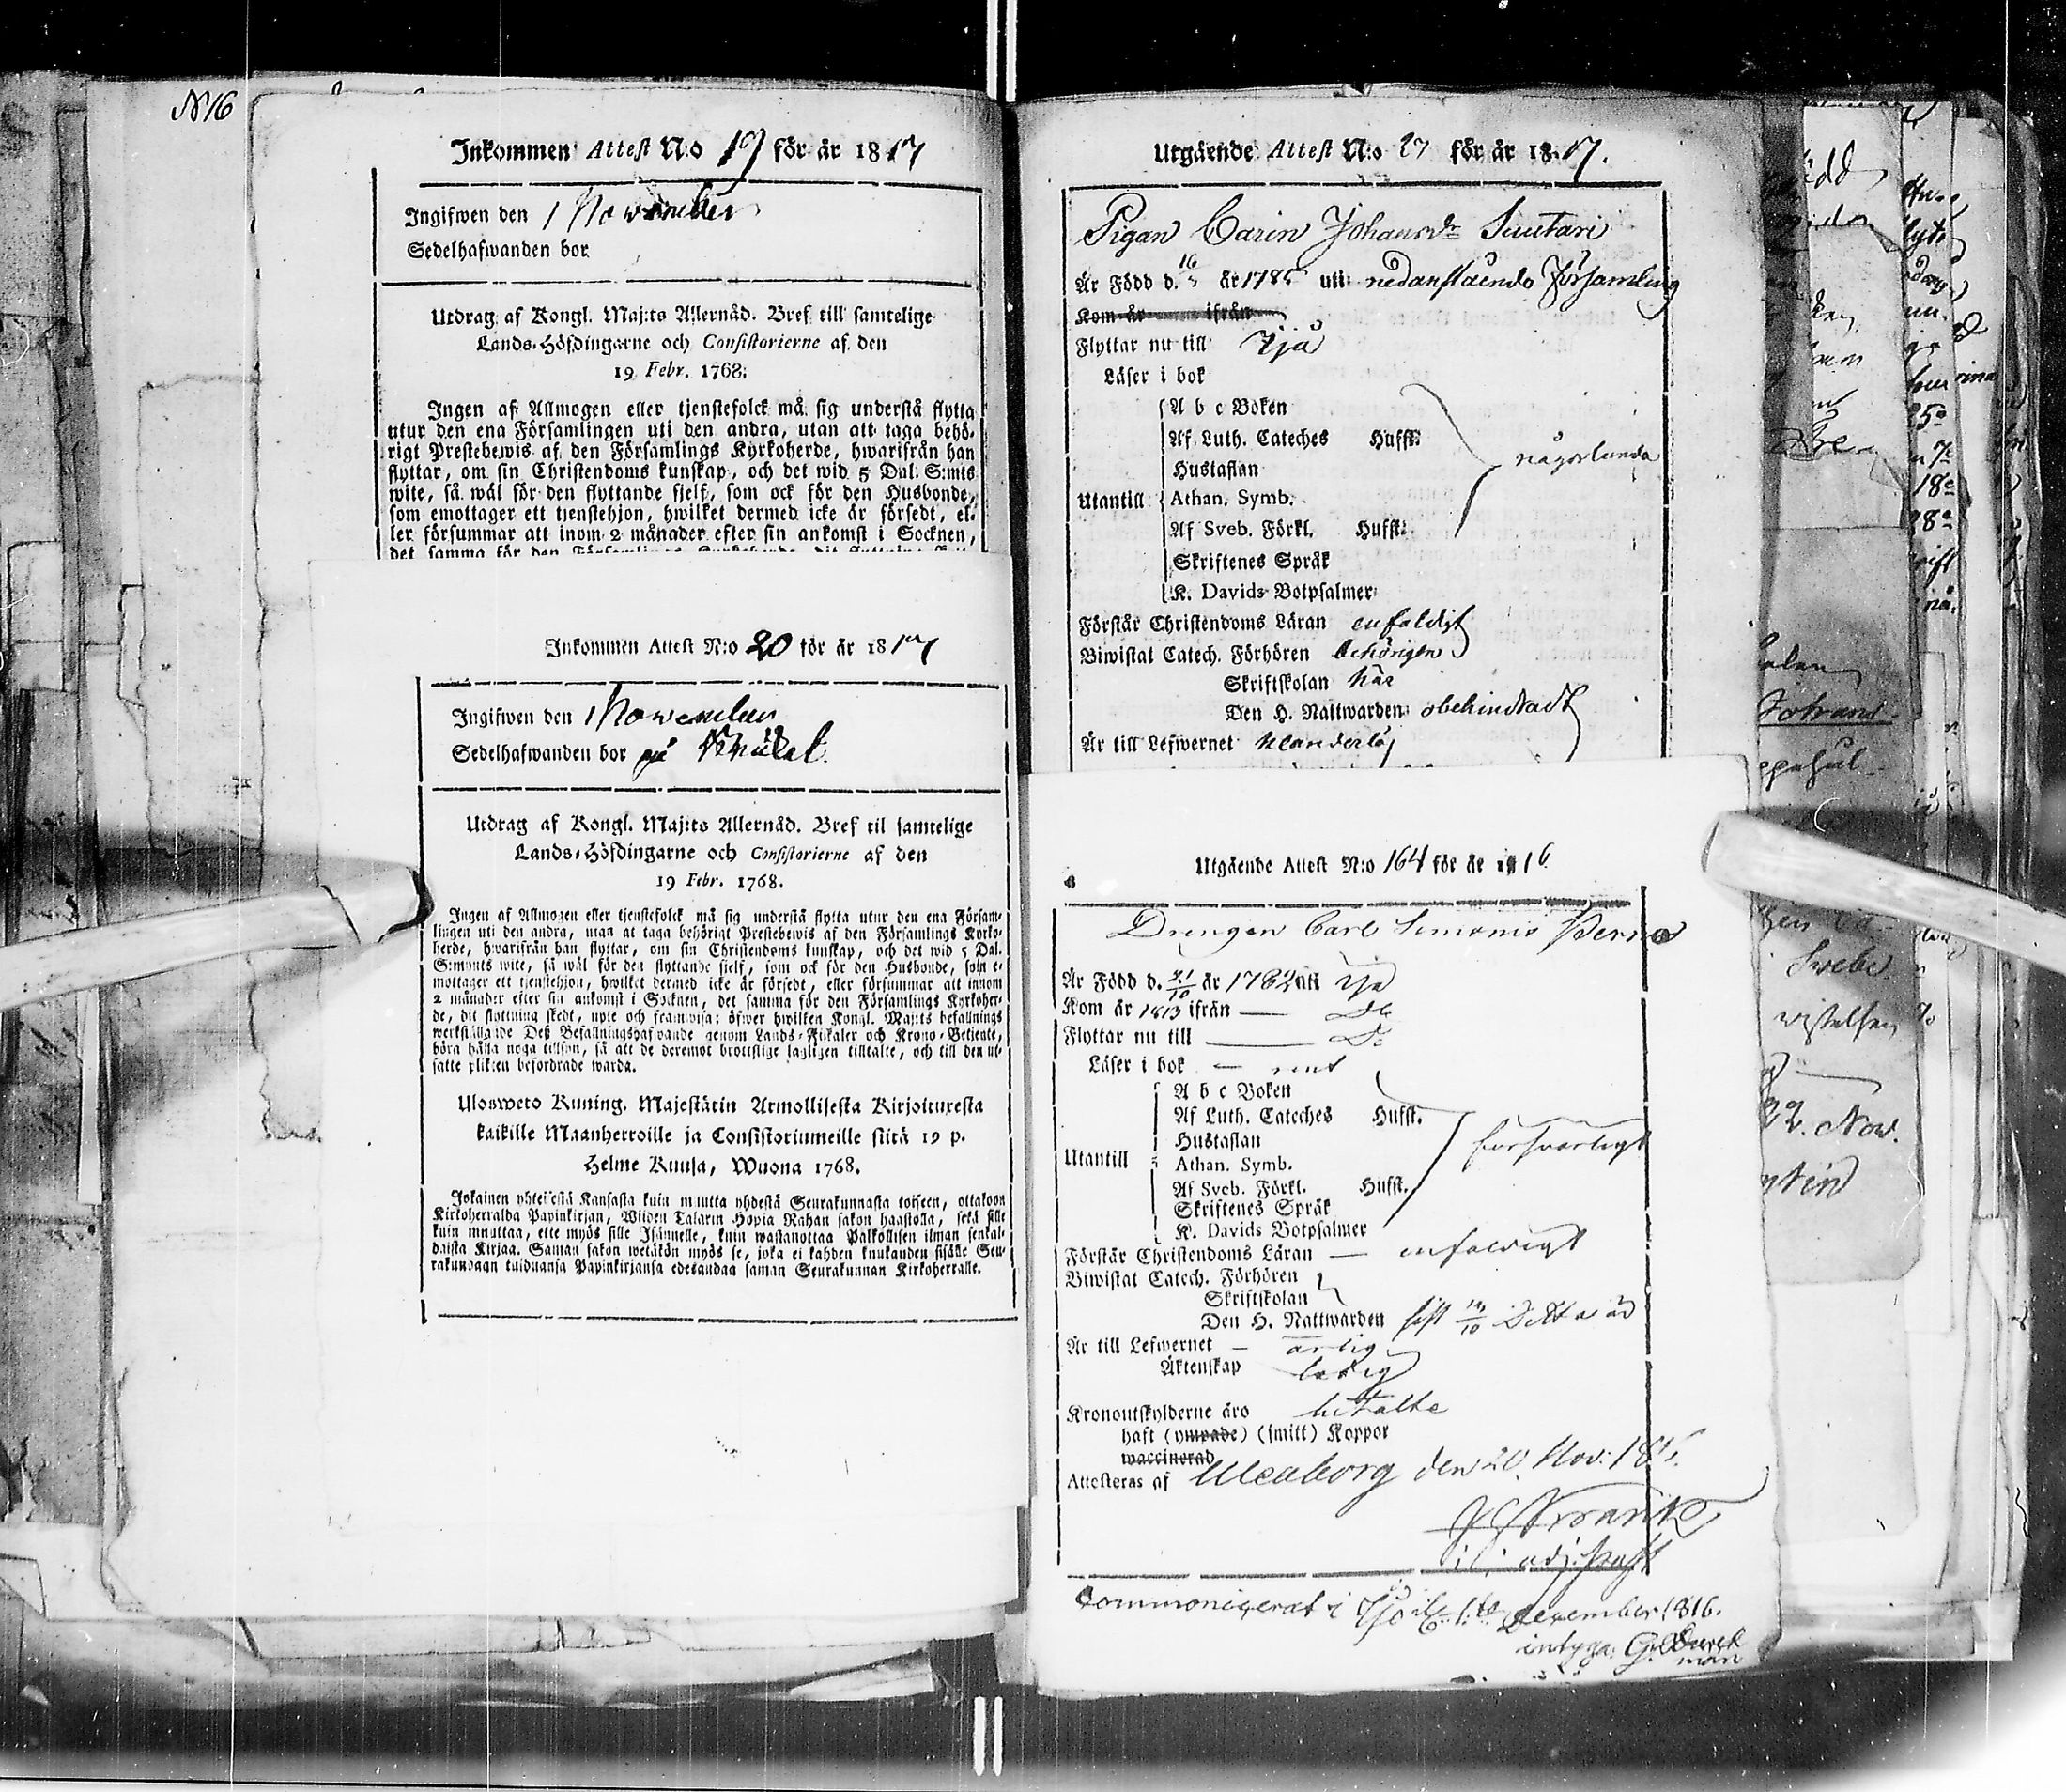 N 16
Inkommen Attest N:o 19 för år 1817
Ingifwen den 1 November
Sedelhafwanden bor
Utdrag af Kongl. Maj:ts Allernåd. Bref till samtelige
Lands-Höfdingarne och Consistorierne af den
19 Febr. 1768.
Ingen af Allmogen eller tjenstefolck må sig understå flytta
utur den ena Församlingen uti den andra, utan att taga behö-
rigt Prestebewis af den Församlings Kyrkoherde, hwarifrån han
flyttar, om sin Christendoms kunskap, och det wid 5 Dal. S:mts
wite, så wäl för den flyttande sjelf, som ock för den Husbonde,
som emottager ett tjenstehjon, hwilket dermed icke är försedt, el-
ler försummar att inom 2 månader efter sin ankomst i Socknen,
det samma för den Församlings Kyrkoherde, dit flyttning
Inkommen Attest N:o 20 för år 1817
Ingifwen den 1 November
Sedelhafwanden bor på
Utdrag af Kongl. Maj:ts Allernåd. Bref til samtelige
Lands-Höfdingarne och Consistorierne af den
19 Febr. 1768.
Ingen af Allmogen eller tjenstefolck må sig understå flytta utur den ena Försam-
lingen uti den andra, utan at taga behörigt Prestebewis af den Församlings Kyrko-
herde, hwarifrån han flyttar, om sin Christendoms kunskap, och det wid 5 Dal.
S:mynts wite, så wäl för den flyttande sjelf, som ock för den Husbonde, som e-
mottager ett tjenstehjon, hwilket dermed icke är försedt, eller försummar att innom
2 månader efter sin ankomst i Socknen, det samma för den Församlings Kyrkoher-
de, dit flyttning skedt, upte och framwisa; öfwer hwilken Kongl. Maj:ts befallnings
werkställande Deß Befallningshafwande genom Lands-Fiskaler och Krono-Betjente,
böra hålla noga tillsyn, så att de deremot brottslige lagligen tilltalte, och till den ut-
satte plikten befordrade warda.
Ulosweto Kuning. Majestätin Armollisesta Kirjoituxesta
kaikille Maanherroille ja Consistoriumeille siitä 19 p.
Helme Kuusa, Wuona 1768.
Jokainen yhteisestä Kansasta kuin muutta yhdestä Seurakunnasta toiseen, ottakoon
Kirkoherralda Papinkirjan, Wiiden Talarin Hopia Rahan sakon haastolla, sekä sille
kuin muuttaa, ette myös sille Isännelle, kuin wastanottaa Palkollisen ilman senkal-
daista Kirjaa. Saman sakon wetäkön myös se, joka ei kahden kuukauden sisälle Seu-
rakundaan tulduansa Papinkirjansa edesandaa saman Seurakunnan Kirkoherralle.
Utgående Attest N:o 27 för år 1817.
Pigan Carin Johansdr Suutari
Är Född d. 16 år 178 uti nedanstående Församling
Kom år ifrån
Flyttar nu till Ijå
Läser i bok
A b c Boken
Af Luth. Cateches Hufft.
Hustaflan
någorlunda
Utantill Athan. Symb.
Af Sveb. Förkl. Hufft.
Skriftenes Språk
K. Davids Botpsalmer
Förstår Christendoms Läran enfaldigt
Biwistat Catech. Förhören behörigen
Skriftskolan här
Den H. Nattwarden obehindradt
Är till Lefwernet klanderlös
Utgående Attest N:o 164 för år 1816
Drengen Carl Simonis
Är Född d. 21/10 år 1782 uti Ijå
Kom år 1813 ifrån Do
Flyttar nu till Do
Läser i bok rent
A b c Boken
Af Luth. Cateches Hufft.
Hustaflan
försvarligt
Utantill Athan. Symb.
Af Sveb. Förkl. Hufft.
Skriftenes Språk
K. Davids Botpsalmer
Förstår Christendoms Läran enfaldigt
Biwistat Catech. Förhören
Skriftskolan
Den H. Nattwarden sist /10 detta år
Är till Lefwernet ärlig
Äktenskap ledig
Kronoutskylderne äro betalte
haft (ympade) (smitt) Koppor
waccinerad
Attesteras af Uleaborg den 20 Nov. 1816.
Commonicerat i Ijo December 1816.
intyga
22. Nov.